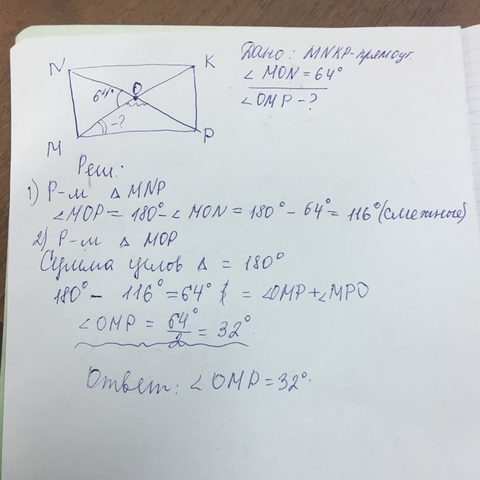 Дано: MNKP-прямоуг.
∠MON=64°
∠OMP-?
N
K
O
64°
-?
M
P
Реш.
1) Р-м △ MNP
∠MOP = 180°-∠MON = 180° - 64° = 116° (смежные)
2) Р-м △ MOP
Сумма углов △ = 180°
180° - 116° = 64° = ∠OMP+∠MPO
∠OMP = 64/2 = 32°
Ответ: ∠OMP = 32°.